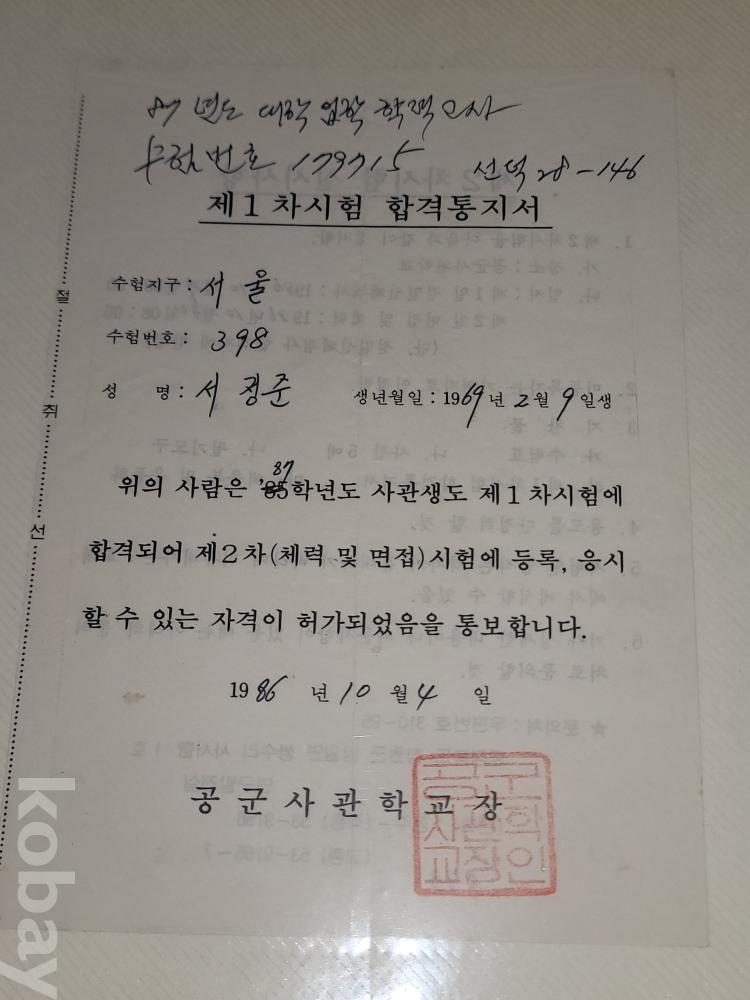 87 년도 대학 입학 학력고사
수험번호 179715 선덕 28-146
제1차시험 합격통지서
수험지구: 서울
수험번호: 398
성 명: 서정준 생년월일: 1969년 2월 9일생
87
위의 사람은 '85학년도 사관생도 제1차시험에
합격되어 제2차(체력 및 면접)시험에 등록, 응시
할 수 있는 자격이 허가되었음을 통보합니다.
1986 년 10 월 4 일
공군사관학교장
공군
사관학
교장인
절
취
선
kobay